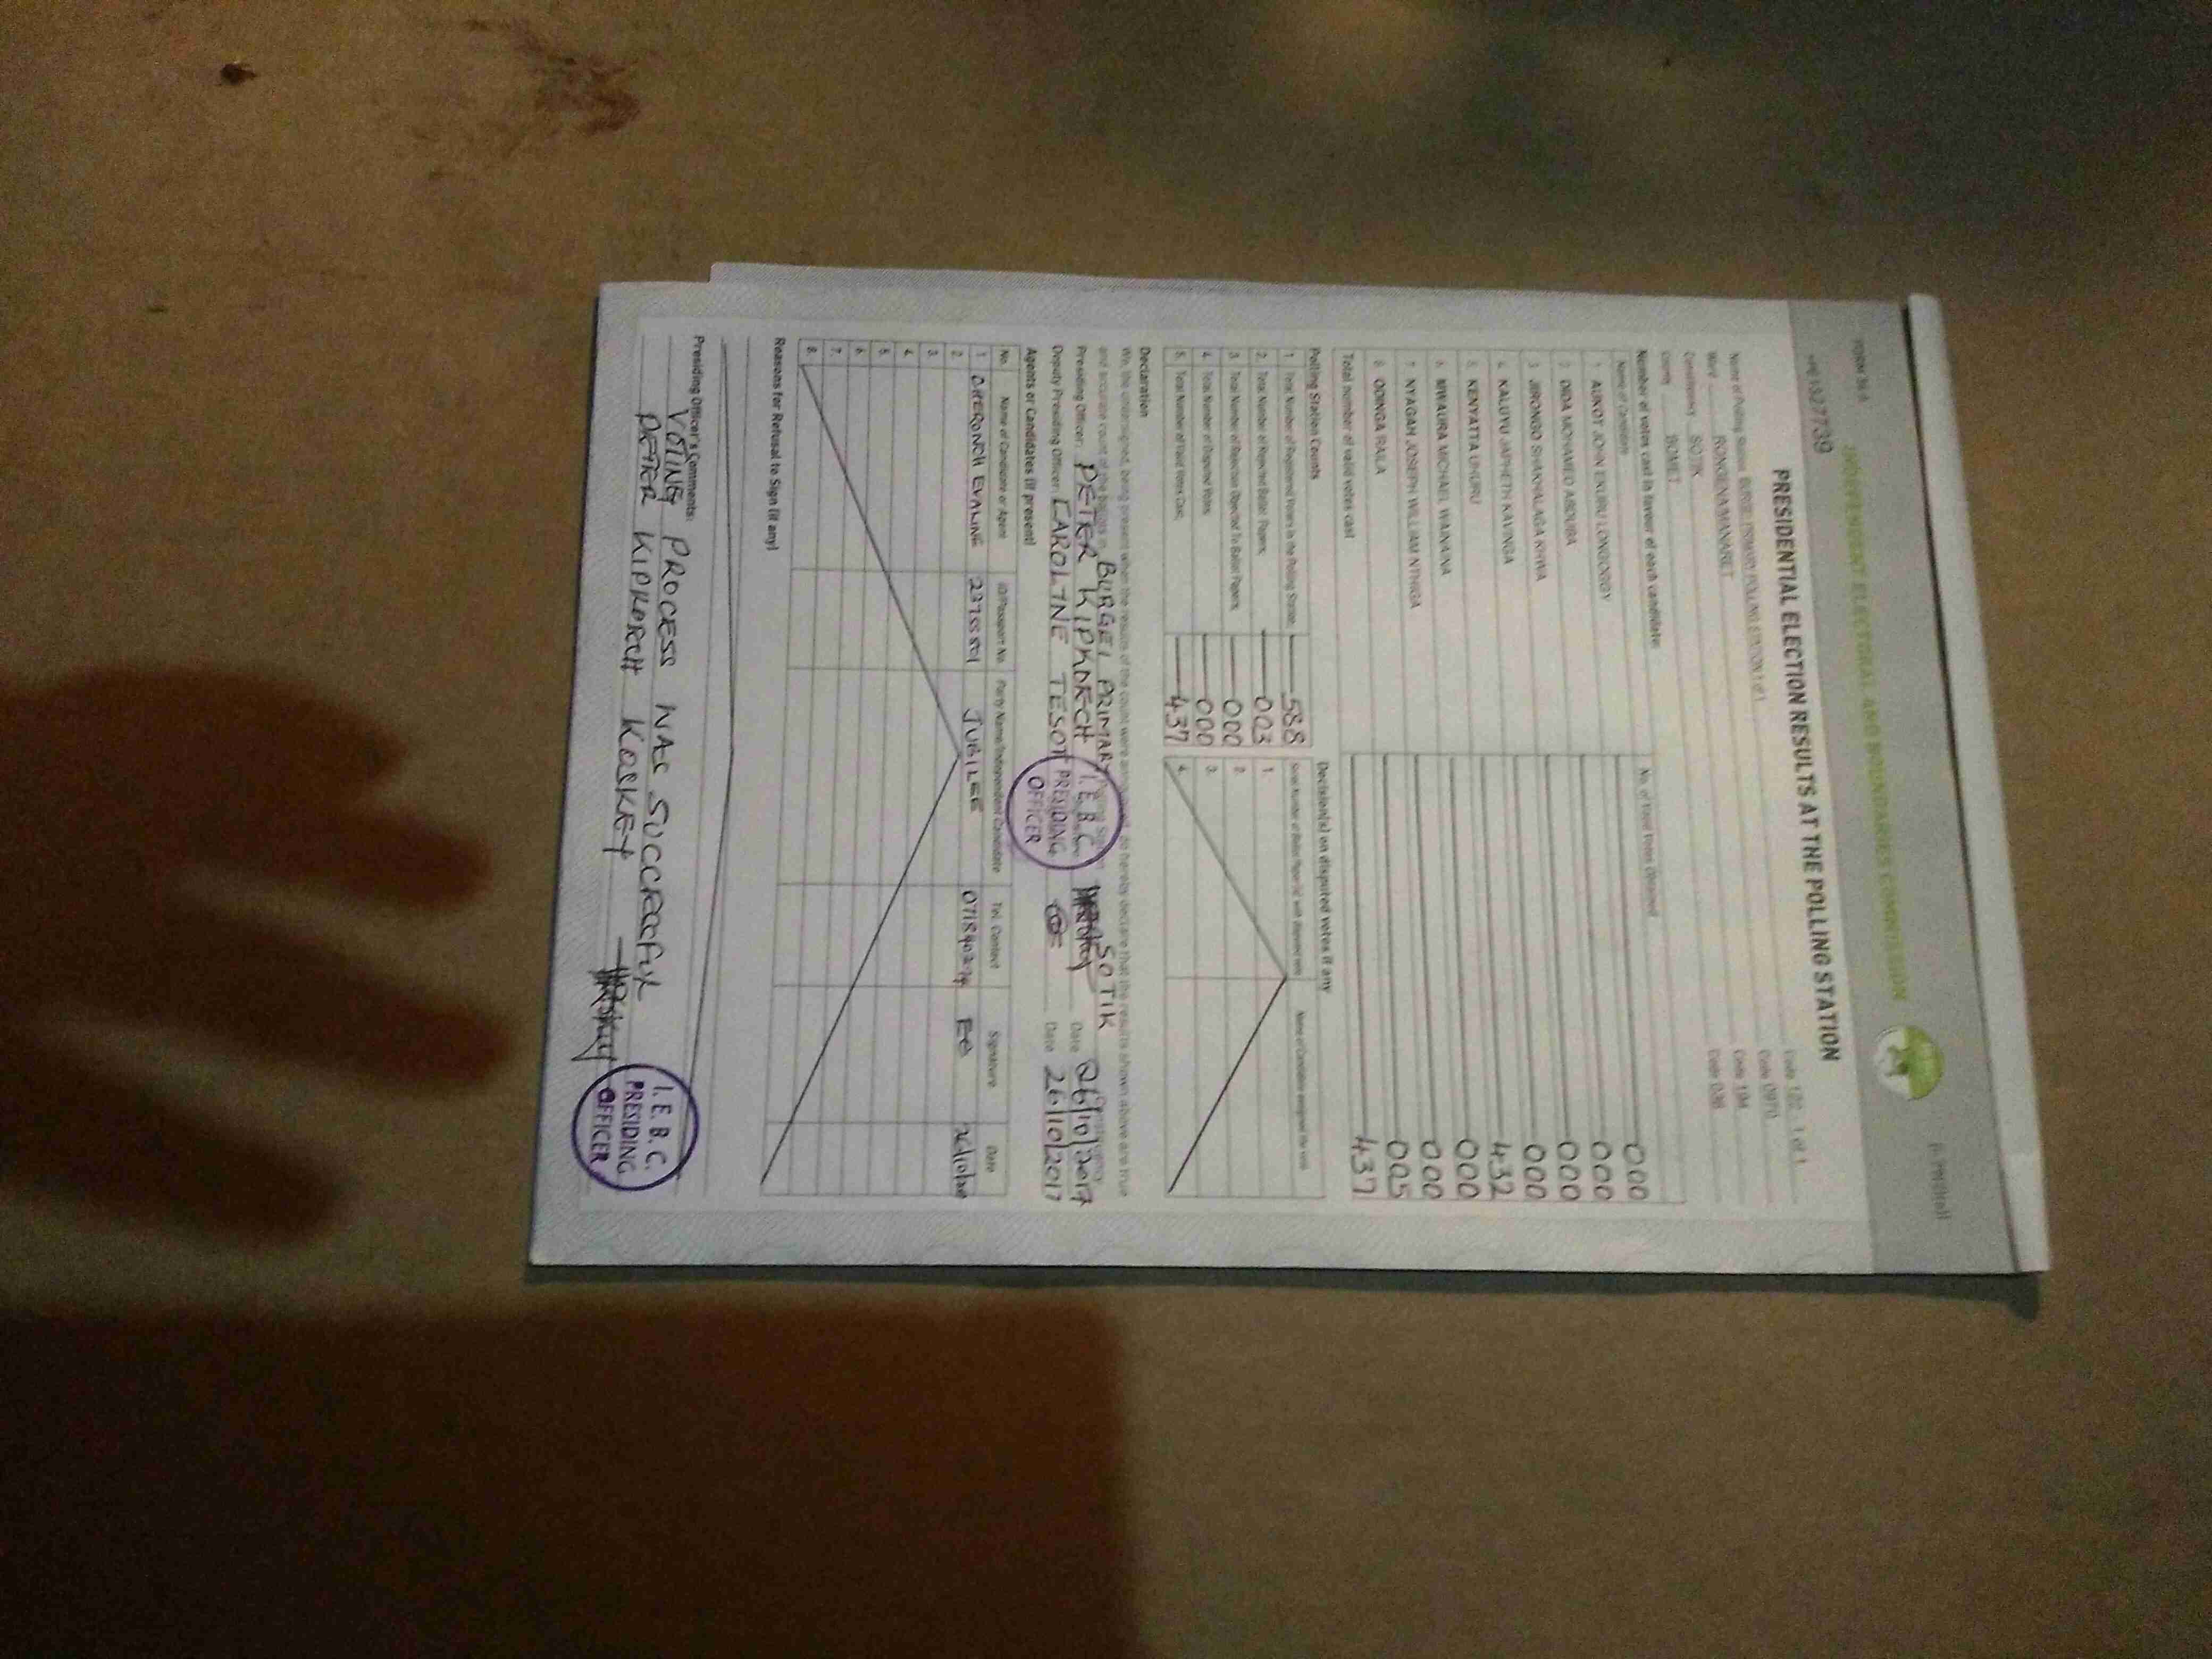 FORM 34 A
INDEPENDENT ELECTORAL AND BOUNDARIES COMMISSION
PRESIDENTIAL ELECTION RESULTS AT THE POLLING STATION
Name of Polling Station PRIMARY POLLING STATION 1 of 1 Code 1 of 1
Ward RONGENA/MANARET Code 0970
Constituency SOTIK Code 194
County BOMET Code 036
Number of votes cast in favour of each candidate
Name of Candidate No. of Valid Votes Obtained
1. AUKOT JOHN EKURU LONGOGGY 000
2. DIDA MOHAMED ABDUBA 000
3. JIRONGO SHAKHALAGA KHWA 000
4. KALUYU JAPHETH KAVINGA 000
5. KENYATTA UHURU 432
6. MWAURA MICHAEL WAINAINA 000
7. NYAGAH JOSEPH WILLIAM NTHIGA 000
8. ODINGA RAILA 005
Total number of valid votes cast 437
Polling Station Counts
1. Total Number of Registered Voters in the Polling Station 588
2. Total Number of Rejected Ballot Papers 003
3. Total Number of Rejection Objected To Ballot Papers 000
4. Total Number of Disputed Votes 000
5. Total Number of Valid Votes Cast 437
Decision(s) on disputed votes if any
1.
2.
3.
4.
Declaration
We, the undersigned, being present when the results of the count were announced, do hereby declare that the results shown above are true
and accurate count of the ballots in BURGEI PRIMARY SOTIK
Presiding Officer: PETER KIPKORECH Date 26/10/2017
Deputy Presiding Officer: CAROLINE TESOT Date 26/10/2017
I. E. B. C.
PRESIDING
OFFICER
Agents or Candidates (if present)
No. Name of Candidate or Agent ID/Passport No. Party Name/Independent Candidate Tel. Contact Signature Date
1. CHERONOH EVALINE JUBILEE
2.
3.
4.
5.
6.
7.
8.
Reasons for Refusal to Sign (if any)
Presiding Officer's Comments:
VOTING PROCESS WAS SUCCESSFUL
PETER KIPKORECH
I. E. B. C.
PRESIDING
OFFICER